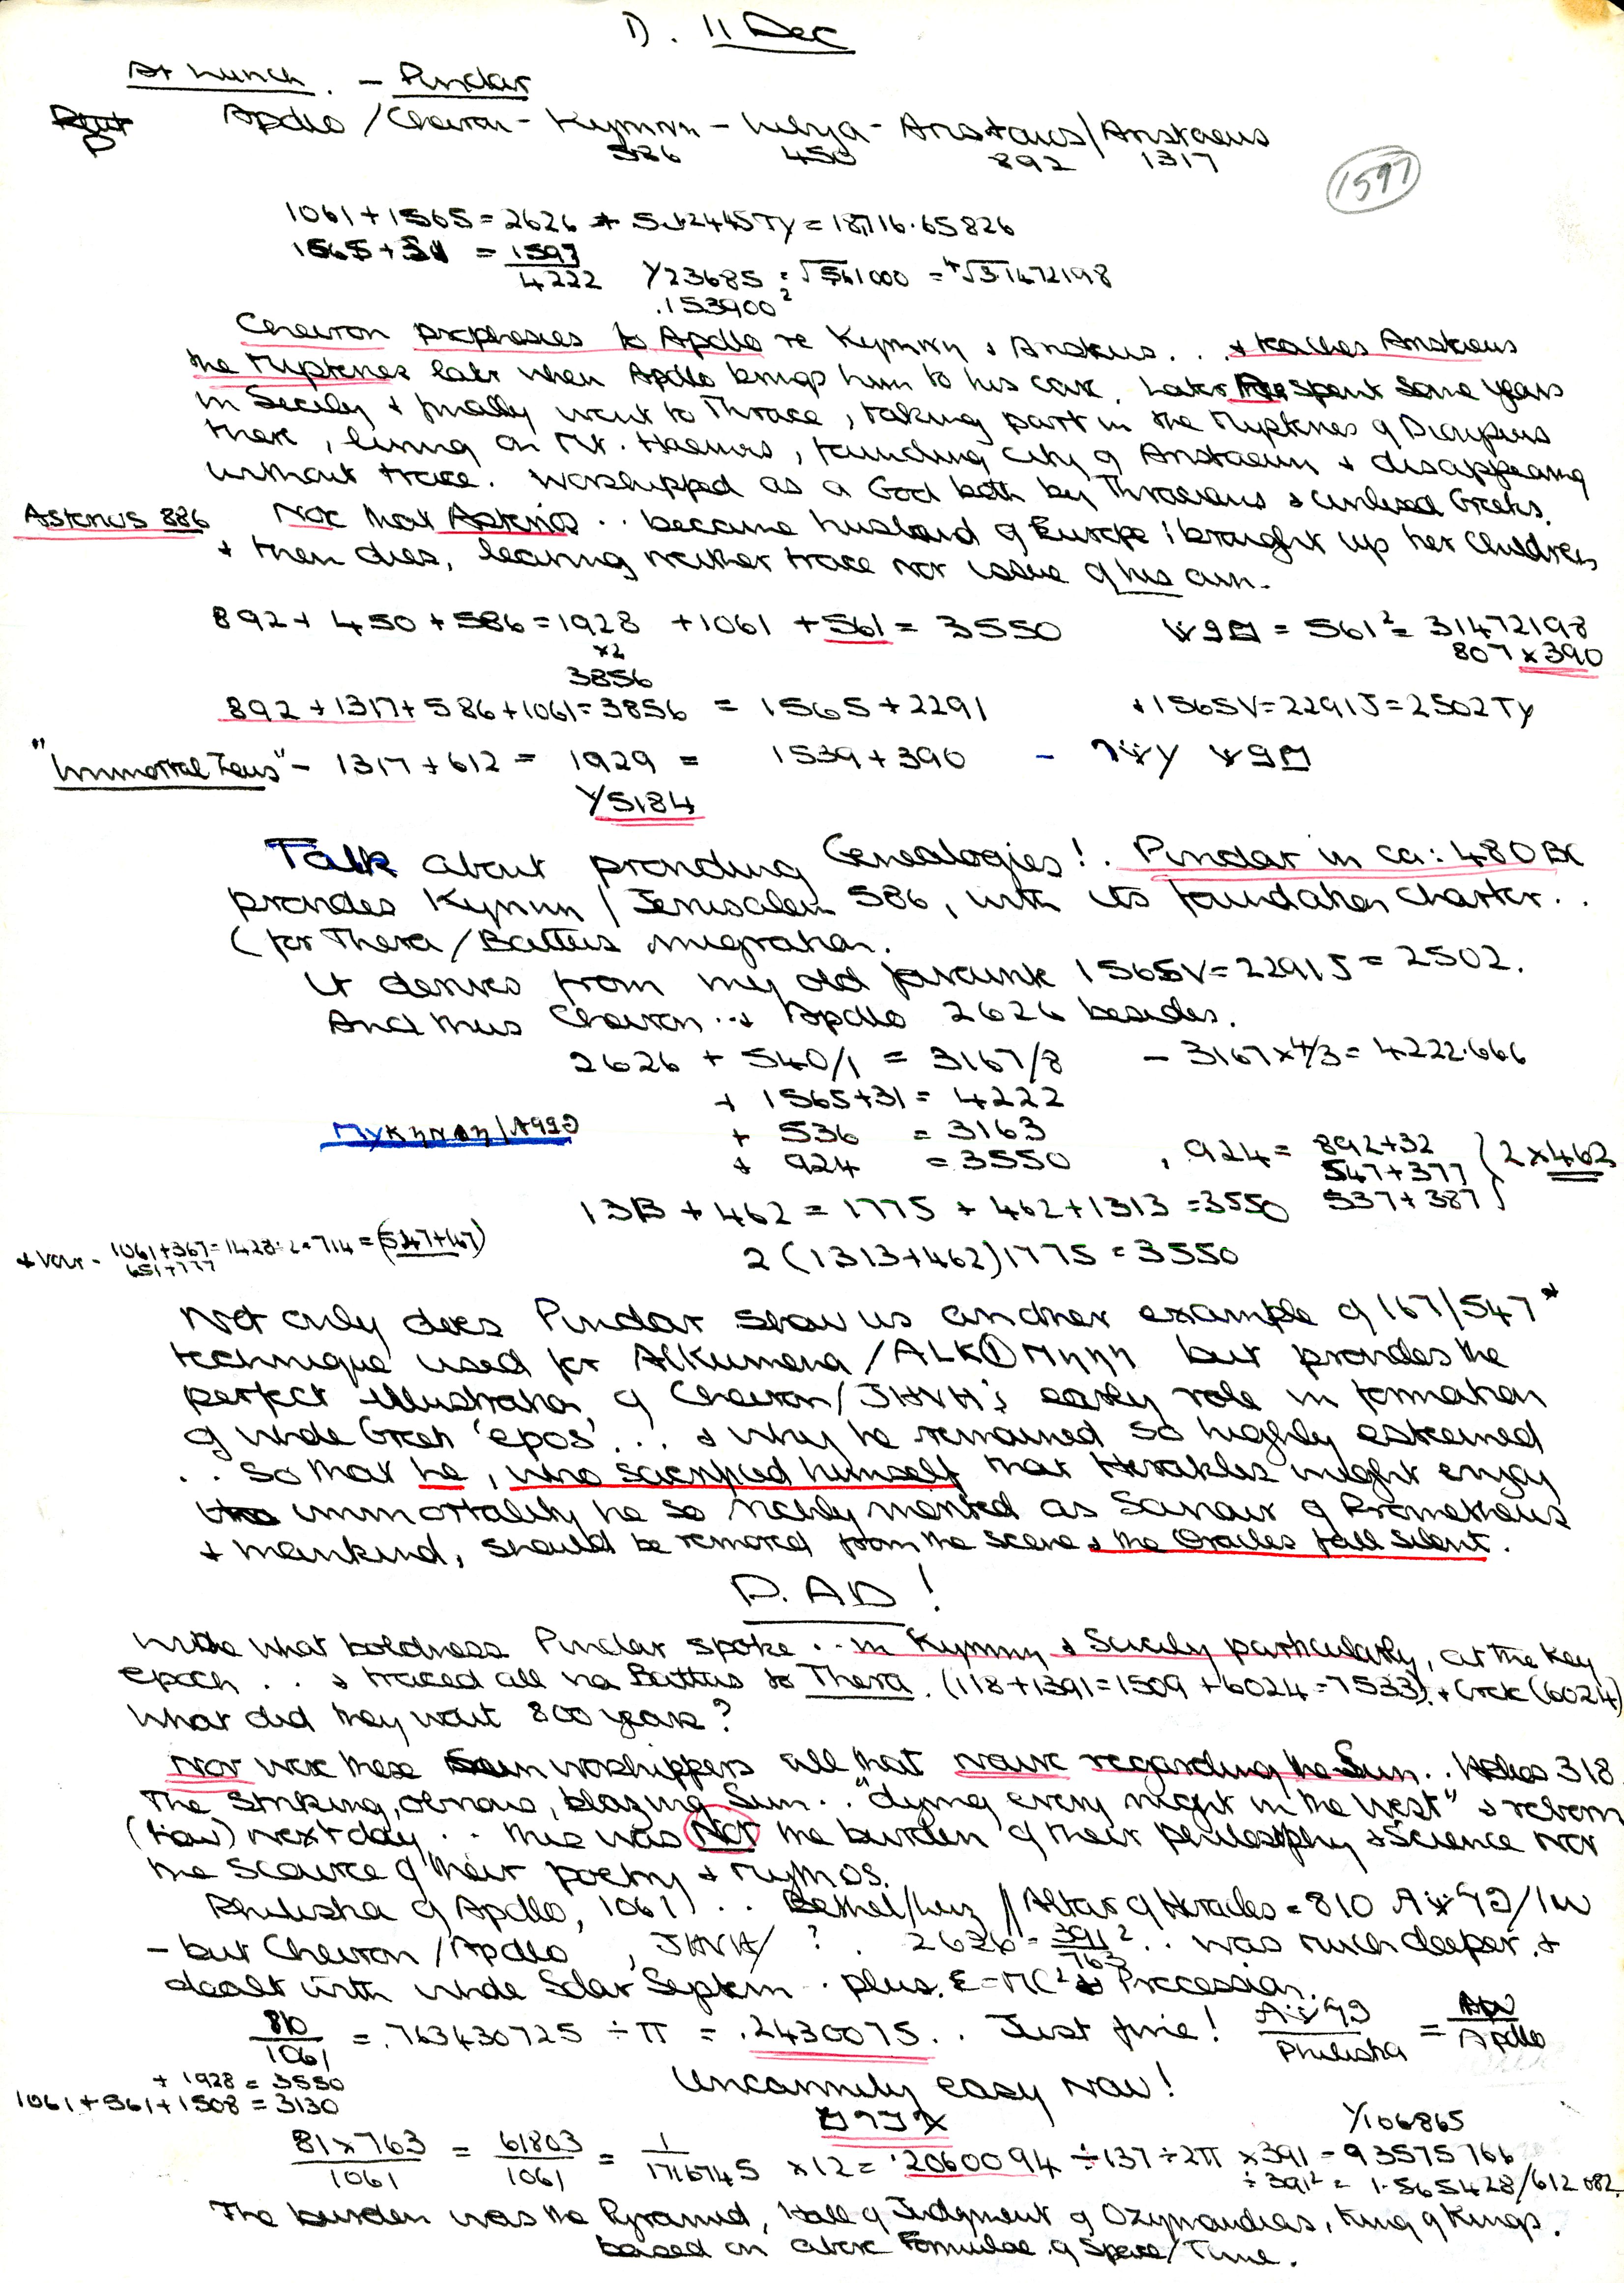 1). 11 Dec
At Lunch. - Pindar
Apollo / Cheiron - Kyrnnn - Libya - Aristaios / Aristaeus
586 450 892 1317
1597
1061 + 1565 = 2626 + = 18,716.65826
1565 + 31 = 1597
4222 Y23685 = √561000 = ⁴√3.1472198
.153900²
Cheiron prophesies to Apollo re & . . & teaches Aristaeus
the Mysteries later when Apollo brings him to his care. Later He spent some years
in Sicily & finally went to Thrace, taking part in the Mysteries of Dionysus
there, living on Mt. Haemus, founding city of Aristaeum & disappearing
without trace. Worshipped as a God both by Thracians & civilised Greeks.
Asterius 886 Note that Asterios . . became husband of Europe : brought up her children
& then dies, leaving neither trace nor issue of his own.
892 + 450 + 586 = 1928 + 1061 + 561 = 3550 = 561² = 31472198
x2 807 x 390
3856
892 + 1317 + 586 + 1061 = 3856 = 1565 + 2291 + 1565V = 2291J = 2502Ty
"Immortal Zeus" - 1317 + 612 = 1929 = 1539 + 390 -
Y5184
Talk about providing Genealogies! . Pindar in ca: 480 BC
provides / Jerusalem 586, with its foundation charter . .
(for Thera / Battus migration.
It derives from my old favourite 1565V = 2291J = 2502.
And thus Cheiron . . & Apollo 2626 besides.
2626 + 540/1 = 3167/8 - 3167 x 4/3 = 4222.666
+ 1565 + 31 = 4222
+ 536 = 3163
+ 924 = 3550 , 924 = 892 + 32
547 + 377
537 + 387
(2 x 462
1313 + 462 = 1775 + 462 + 1313 = 3550
+ Var - 1061 + 367 = 1428 ÷ 2 = 714 = (547 + 167)
651 + 777
2 (1313 + 462) 1775 = 3550
Not only does Pindar show us another example of 167/547*
technique used for Alkumena / but provides the
perfect illustration of Cheiron / JHVH's early role in formation
of whole Greek 'epos' . . . & why he remained so highly esteemed
. . So that he, who sacrificed himself that Herakles might enjoy
immortality he so richly merited as Saviour of Prometheus
& mankind, should be removed from the scene & the Oracles fall silent.
P. AD !
With what boldness Pindar spoke . . in & Sicily particularly, at the key
epoch . . & traced all via Battus to Thera. (118 + 1391 = 1509 + 6024 = 7533) + (6024)
What did they want 800 years?
Nor were these Sun worshippers all that naive regarding the Sun . . Helios 318
The striking, obvious, blazing Sun . . "dying every night in the West" & reborn
next day . . this was Not the burden of their philosophy & Science nor
the source of their poetry & mythos.
Philisha of Apollo, 1061) . . Bethel/Luz // Altar of Heracles = 810
- but Cheiron / Apollo , JHVH / ? . 2626 = 391² . . was much deeper. &
763
dealt with whole Solar System . . plus. E = MC² & Precession.
810/1061 = .763430725 ÷ π = .2430075 . . Just fine! Philisha = Apollo
+ 1928 = 3550
1061 + 561 + 1508 = 3130
Uncannily easy now!
Y106865
81 x 763 / 1061 = 61803 / 1061 = 1 / 1716745 x 12 = .2060094 ÷ 137 ÷ 2π x 391 = 93575766
÷ 391² = 1.5655428 / 612082
The burden was the Pyramid, Hall of Judgment of Ozymandias, King of Kings.
based on above Formulae of Space / Time.